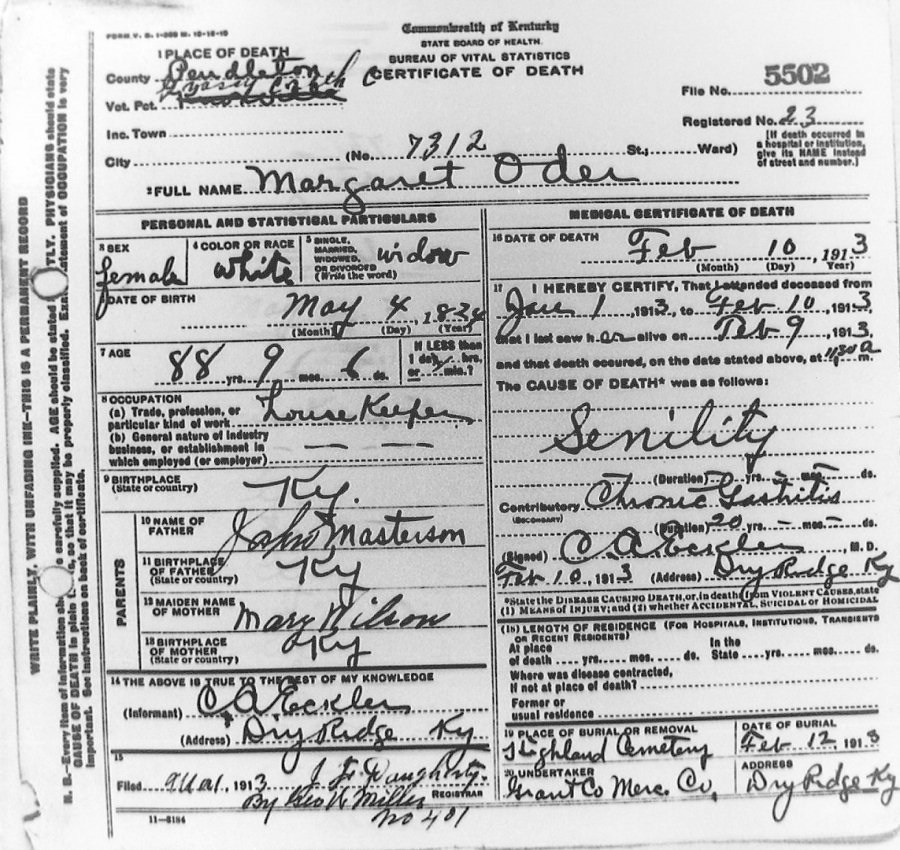 FORM V. S. 1-
Commonwealth of Kentucky
STATE BOARD OF HEALTH.
BUREAU OF VITAL STATISTICS
CERTIFICATE OF DEATH
1 PLACE OF DEATH
County Pendleton
Vot. Pct.
Inc. Town
City
(No. 7312 St.; Ward)
File No. 5502
Registered No. 23
(If death occurred in
a hospital or institution,
give its NAME instead
of street and number.)
2 FULL NAME Margaret Oder
PERSONAL AND STATISTICAL PARTICULARS
3 SEX
female
4 COLOR OR RACE
white
5 SINGLE,
MARRIED,
WIDOWED,
OR DIVORCED
(Write the word)
widow
DATE OF BIRTH
May 4, 1824
(Month) (Day) (Year)
7 AGE
88 yrs. 9 mos. 6 ds.
If LESS than
1 day, hrs,
or min.?
8 OCCUPATION
(a) Trade, profession, or
particular kind of work House Keeper
(b) General nature of industry
business, or establishment in
which employed (or employer)
9 BIRTHPLACE
(State or country)
Ky.
PARENTS
10 NAME OF
FATHER
John Masterson
11 BIRTHPLACE
OF FATHER
(State or country)
Ky
12 MAIDEN NAME
OF MOTHER
Mary Wilson
13 BIRTHPLACE
OF MOTHER
(State or country)
Ky
14 THE ABOVE IS TRUE TO THE BEST OF MY KNOWLEDGE
(Informant) C. A. Eckler
(Address) Dry Ridge Ky
15
Filed 1913 Daugherty.
REGISTRAR
By Geo Miller
No 401
11-3184
MEDICAL CERTIFICATE OF DEATH
16 DATE OF DEATH
Feb 10, 1913
(Month) (Day) Year)
17 I HEREBY CERTIFY, That I attended deceased from
Jan 1 1913, to Feb 10, 1913,
that I last saw her alive on Feb 9, 1913,
and that death occured, on the date stated above, at 1130 a m.
The CAUSE OF DEATH* was as follows:
Senility
(Duration) yrs. mos. ds.
Contributory Chronic Gastritis
(SECONDARY)
(Duration) 20 yrs. — mos. — ds.
(Signed) C A Eckler M. D.
Feb 10, 1913 (Address) Dry Ridge Ky
*State the DISEASE CAUSING DEATH, or, in death from VIOLENT CAUSES, state
(1) MEANS OF INJURY; and (2) whether ACCIDENTAL, SUICIDAL OR HOMICIDAL
(18) LENGTH OF RESIDENCE (FOR HOSPITALS, INSTITUTIONS, TRANSIENTS
OR RECENT RESIDENTS)
At place
of death yrs. mos. ds.
In the
State yrs. mos. ds.
Where was disease contracted,
If not at place of death?
Former or
usual residence
19 PLACE OF BURIAL OR REMOVAL
Highland Cemetery
DATE OF BURIAL
Feb 12, 1913
20 UNDERTAKER
Grant Co Merc. Co.
ADDRESS
Dry Ridge Ky
WRITE PLAINLY, WITH UNFADING INK—THIS IS A PERMANENT RECORD
N. B.—Every item of information carefully supplied. AGE should be stated PHYSICIANS should state
CAUSE OF DEATH in plain so that it may be properly classified. statement of OCCUPATION is very
important. See instructions on back of certificate.